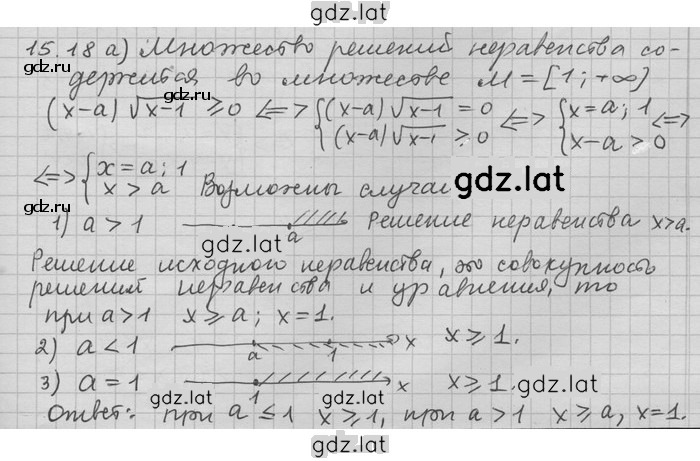 gdz.lat
15.18 а) Множество решений неравенства со-
gdz.lat
держится во множестве M = [1; +∞)
gdz.lat
(x-a)√x-1 ≥ 0 <=> { (x-a)√x-1 = 0 <=> { x = a; 1 <=>
(x-a)√x-1 > 0 x-a > 0
gdz.lat
<=> { x = a; 1
x > a Возможны случаи
gdz.lat
gdz.lat
1) a > 1 a Решение неравенства x>a.
gdz.lat
Решение исходного неравенства, это совокупность
решений неравенства и уравнения, то
gdz.lat
при a>1 x ≥ a; x = 1.
2) a < 1 a 1 x x ≥ 1.
gdz.lat
3) a = 1 1 x x ≥ 1.
gdz.lat
gdz.lat
gdz.lat
Ответ: при a ≤ 1 x ≥ 1, при a > 1 x ≥ a, x = 1.
gdz.lat